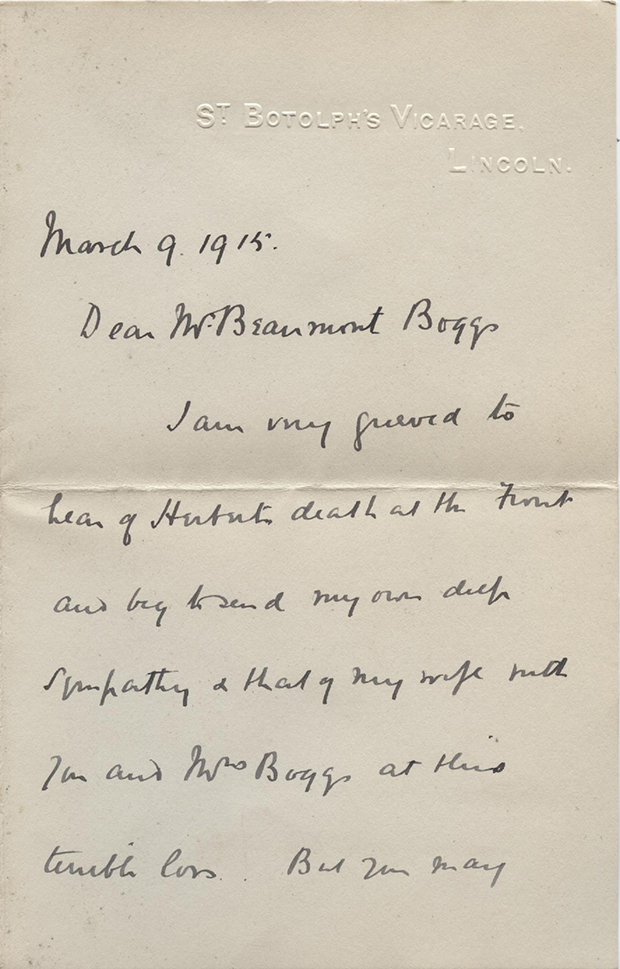 ST BOTOLPH'S VICARAGE,
LINCOLN.
March 9. 1915.
Dear Mr. Beaumont Boggs
I am very grieved to
hear of Herberts death at the Front
and beg to send my own deep
sympathy & that of my wife with
you and Mrs Boggs at this
terrible loss. But you may